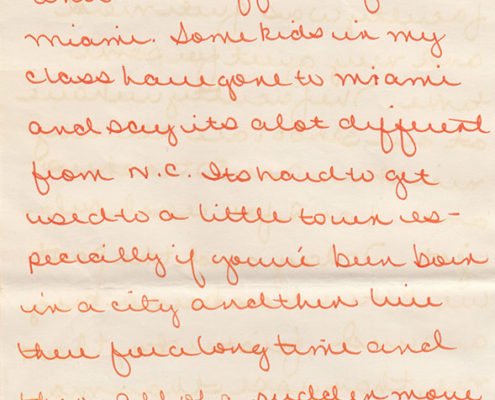 miami. Some kids in my
class have gone to miami
and say its alot different
from N.C. Its hard to get
used to a little town es-
pecially if youv'e been born
in a city and then live
there for a long time and
then all of a sudden move